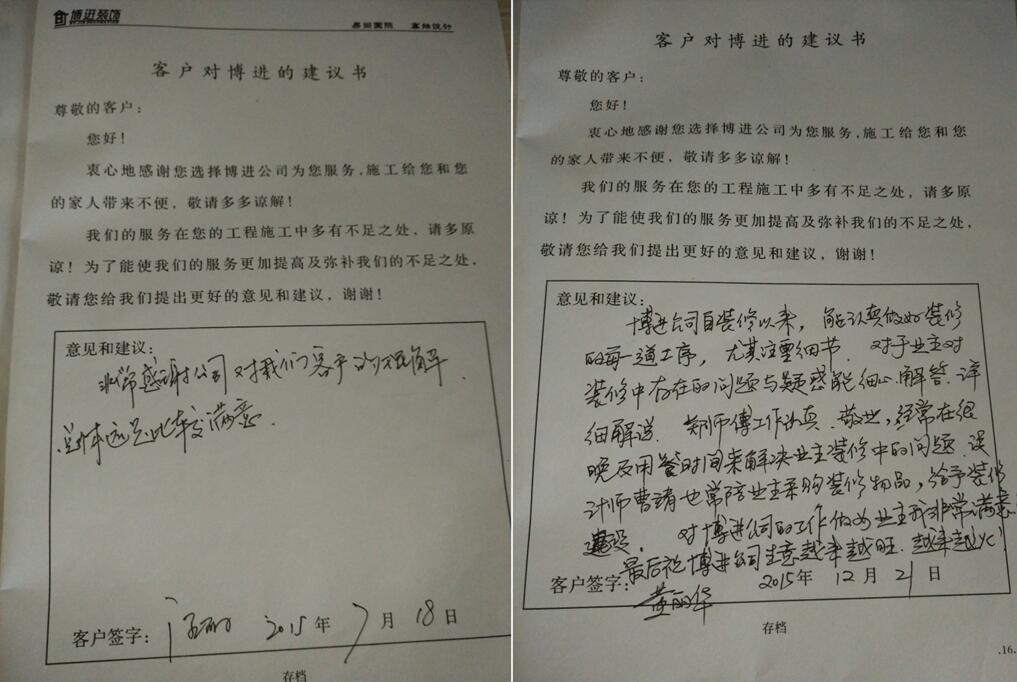 博进装饰
客户对博进的建议书
尊敬的客户：
您好！
衷心地感谢您选择博进公司为您服务,施工给您和您
的家人带来不便，敬请多多谅解！
我们的服务在您的工程施工中多有不足之处，请多原
谅！为了能使我们的服务更加提高及弥补我们的不足之处，
敬请您给我们提出更好的意见和建议，谢谢！
意见和建议：
非常感谢公司对我们客户的
总体还是比较满意.
客户签字： 2015年7月18日
存档
客户对博进的建议书
尊敬的客户：
您好！
衷心地感谢您选择博进公司为您服务,施工给您和您
的家人带来不便，敬请多多谅解！
我们的服务在您的工程施工中多有不足之处，请多原
谅！为了能使我们的服务更加提高及弥补我们的不足之处，
敬请您给我们提出更好的意见和建议，谢谢！
意见和建议：
博进公司自装修以来，能认真做好装修
的每一道工序，尤其注重细节 对于业主对
装修中存在的问题与疑惑能细心解答.详
细解说. 郑师傅工作认真.敬业，经常在很
晚及用餐时间来解决业主装修中的问题.设
计师曹靖也常陪业主采购装修物品，给予装修
建议. 对博进公司的工作做为业主我非常满意.
最后祝博进公司生意越来越旺.越来越火!
客户签字： 2015年12月21日
黄丽华
存档
.16.